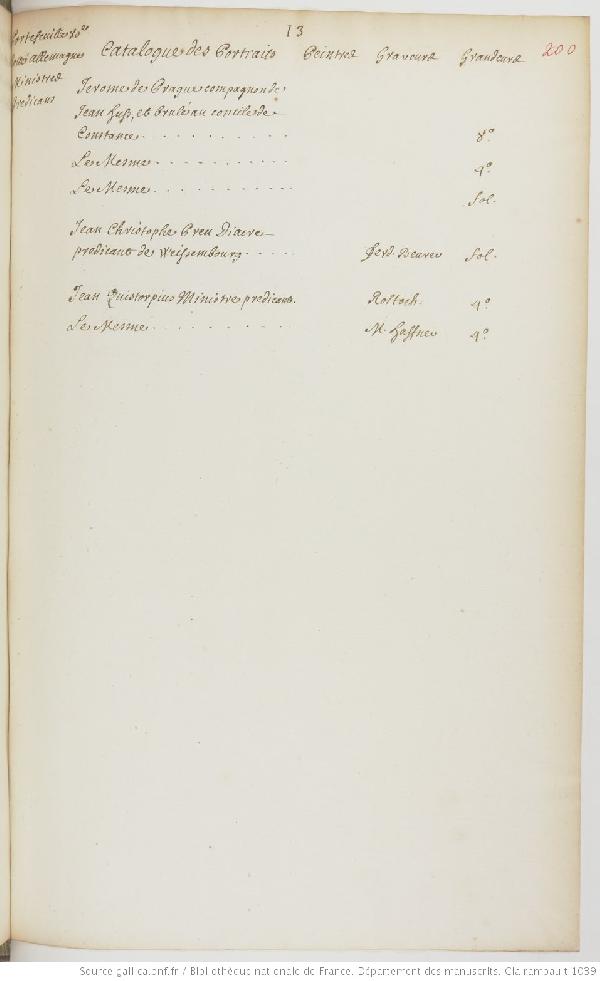 13
200
Portefeuille 10.e
allemagne
Ministres
predicans
Catalogue des Portraits Peintres Graveurs Grandeurs
Jerome de Prague compagnon de
Jean huss, et brulé au concile de
Constance . . . . . . . . . . 8.o
Le Mesme . . . . . . . . . . 4.o
Le Mesme . . . . . . . . . . fol.
Jean Christophe Breu Diacre
predicant de Weissembourg . . . . ferd. Deurer fol.
Jean Quistorpius Ministre predicant. Rostoch. 4.o
Le Mesme . . . . . . . . . . M. haffner 4.o
Source gallica.bnf.fr / Bibliothèque nationale de France. Département des manuscrits. Clairambault 1039